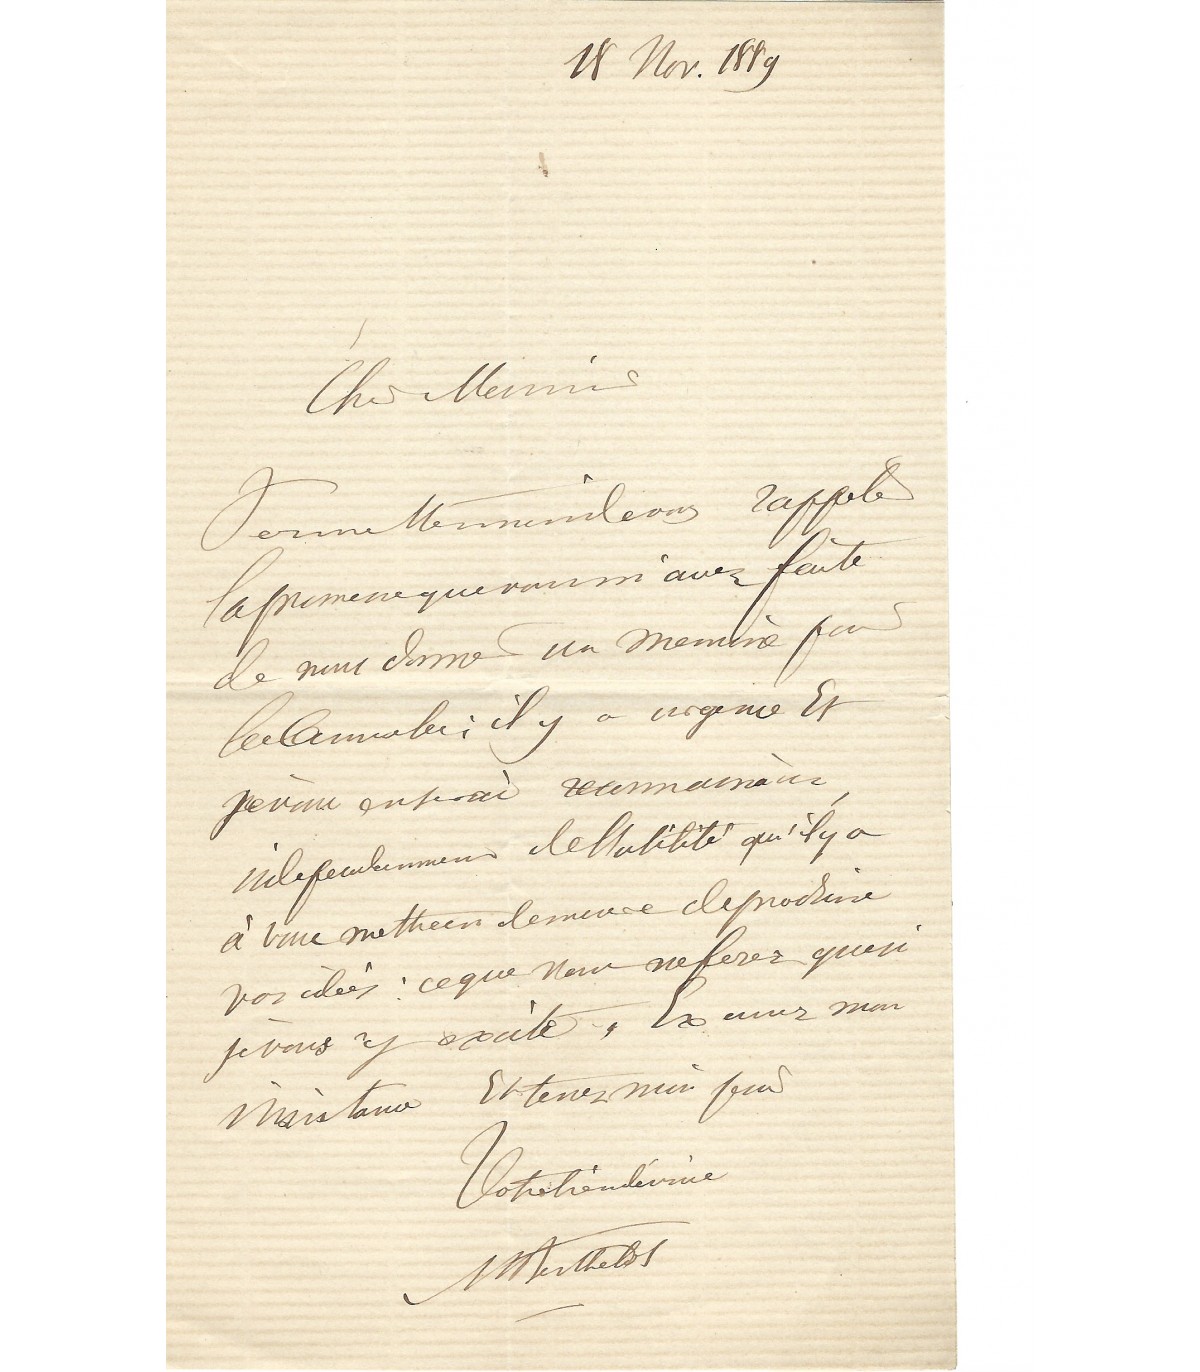 18 Nov. 1889
Cher Meunier
Permettez moi de vous rappeler
la promesse que vous m'avez faite
de nous donner un memoire pour
les Annales; il y a urgence Et
je vous en serai reconnaissant,
independamment de l'utilité qu'il y a
à vous mettre en demeure de produire
vos idées: ce que vous ne ferez que si
je vous y excite. Excusez mon
insistance Et tenez moi pour
Votre bien dévoué
M Berthelot